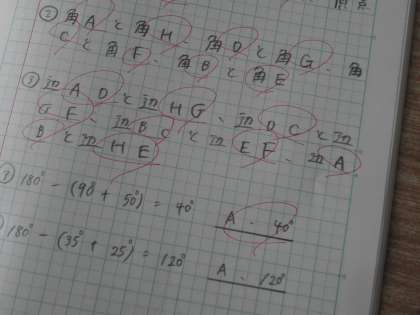 ② 角Aと角H 角Dと角G 角
Cと角F 角Bと角E
③ 辺ADと辺HG、辺DCと辺
GF 辺BCと辺EF、辺A
Bと辺HE
180° − (90° + 50°) = 40° A. 40°
180° − (35° + 25°) = 120° A. 120°